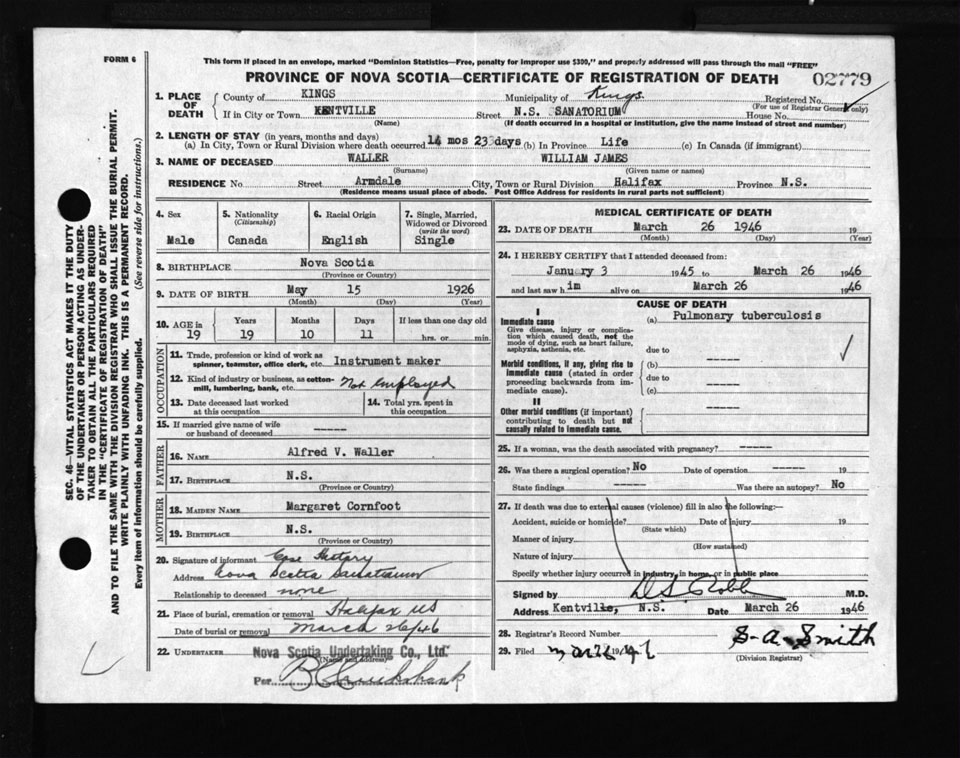 FORM 6
This form if placed in an envelope, marked "Dominion Statistics—Free, penalty for improper use $300," and properly addressed will pass through the mail "FREE"
PROVINCE OF NOVA SCOTIA—CERTIFICATE OF REGISTRATION OF DEATH
02779
SEC. 46—VITAL STATISTICS ACT MAKES IT THE DUTY
OF THE UNDERTAKER OR PERSON ACTING AS UNDER-
TAKER TO OBTAIN ALL THE PARTICULARS REQUIRED
IN THE "CERTIFICATE OF REGISTRATION OF DEATH"
AND TO FILE THE SAME WITH THE DIVISION REGISTRAR WHO SHALL ISSUE THE BURIAL PERMIT.
WRITE PLAINLY WITH UNFADING INK. THIS IS A PERMANENT RECORD.
Every item of information should be carefully supplied. (See reverse side for instructions.)
1. PLACE OF DEATH
County of KINGS Municipality of Kings Registered No.
(For use of Registrar General only)
If in City or Town KENTVILLE Street N.S. SANATORIUM House No.
(Name) (If death occurred in a hospital or institution, give the name instead of street and number)
2. LENGTH OF STAY (in years, months and days)
(a) In City, Town or Rural Division where death occurred 14 mos 23 days (b) In Province Life (c) In Canada (if immigrant)
3. NAME OF DECEASED WALLER WILLIAM JAMES
(Surname) (Given name or names)
RESIDENCE No Street Armdale City, Town or Rural Division Halifax Province N.S.
(Residence means usual place of abode. Post Office Address for residents in rural parts not sufficient)
4. Sex 5. Nationality 6. Racial Origin 7. Single, Married,
(Citizenship) Widowed or Divorced
(write the word)
Male Canada English Single
8. BIRTHPLACE Nova Scotia
(Province or Country)
9. DATE OF BIRTH May 15 1926
(Month) (Day) (Year)
10. AGE in Years Months Days If less than one day old
19 19 10 11 hrs. or min.
OCCUPATION
11. Trade, profession or kind of work as
spinner, teamster, office clerk, etc. Instrument maker
12. Kind of industry or business, as cotton-
mill, lumbering, bank, etc. Not employed
13. Date deceased last worked
at this occupation
14. Total yrs. spent in
this occupation
15. If married give name of wife
or husband of deceased -----
FATHER
16. NAME Alfred V. Waller
17. BIRTHPLACE N.S.
(Province or Country)
MOTHER
18. MAIDEN NAME Margaret Cornfoot
19. BIRTHPLACE N.S.
(Province or Country)
20. Signature of informant Case History
Address Nova Scotia Sanatorium
Relationship to deceased none
21. Place of burial, cremation or removal Halifax NS
Date of burial or removal March 26/46
22. UNDERTAKER Nova Scotia Undertaking Co., Ltd.
(Name and address)
Per
MEDICAL CERTIFICATE OF DEATH
23. DATE OF DEATH March 26 1946 19
(Month) (Day) (Year)
24. I HEREBY CERTIFY that I attended deceased from:
January 3 1945 to March 26 1946
and last saw him alive on March 26 1946
CAUSE OF DEATH
I
Immediate cause (a) Pulmonary tuberculosis
Give disease, injury or complica-
tion which caused death, not the
mode of dying, such as heart failure,
asphyxia, asthenia, etc. due to -----
Morbid conditions, if any, giving rise to (b)
immediate cause (stated in order due to -----
proceeding backwards from im-
mediate cause). (c)
II
Other morbid conditions (if important) -----
contributing to death but not
causally related to immediate cause.
25. If a woman, was the death associated with pregnancy? -----
26. Was there a surgical operation? No Date of operation ----- 19
State findings ----- Was there an autopsy? No
27. If death was due to external causes (violence) fill in also the following:—
Accident, suicide or homicide? Date of injury 19
(State which)
Manner of injury
(How sustained)
Nature of injury
Specify whether injury occurred in industry, in home, or in public place
Signed by D S Robb M.D.
Address Kentville, N.S. Date March 26 1946
28. Registrar's Record Number
29. Filed Mar 26 1946 S-A-Smith
(Division Registrar)